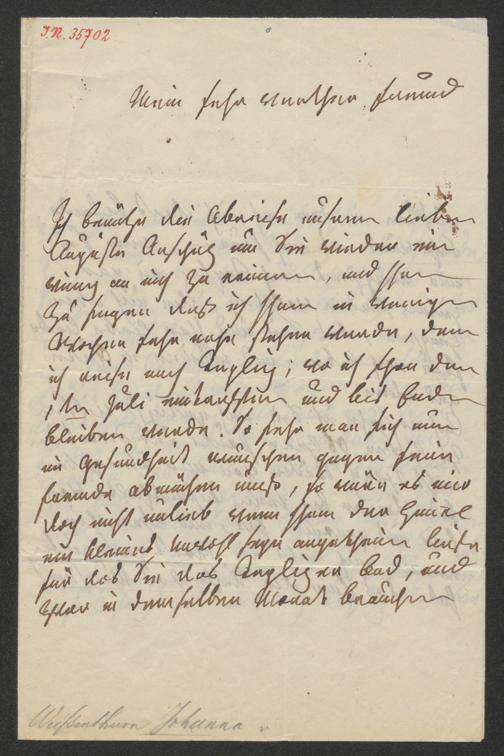 I.N. 35702
Mein sehr werther Freund
Ich benütze die Abreise unserer lieben
Auguste Anschütz um Sie wieder ein
wenig an mich zu erinnern, und Ihnen
zu sagen daß ich Ihnen in wenigen
Wochen sehr nahe stehen werde, denn
ich reise nach Teplitz; wo ich schon den
1ten Juli eintreffen und bis Ende
bleiben werde. So sehr man sich nun
um Gesundheit wünschen gegen seine
Freunde abmühen muß, so wäre es mir
doch nicht unlieb wenn Ihnen der Himmel
ein kleines Unwohl seyn angedeihen ließe
für das Sie das Teplitzer Bad, und
zwar in demselben Monat brauchen
Weißenthurn Johanna v